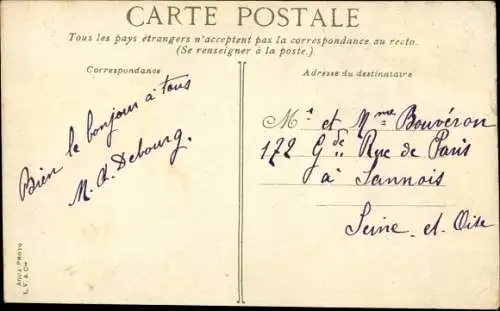 CARTE POSTALE
Tous les pays étrangers n'acceptent pas la correspondance au recto.
(Se renseigner à la poste.)
Correspondance
Bien le bonjour à tous
M. A. Debourg.
Adresse du destinataire
Mr et Mme Bouvéron
172 Gde Rue de Paris
à Sannois
Seine-et-Oise
L. V. & Cie